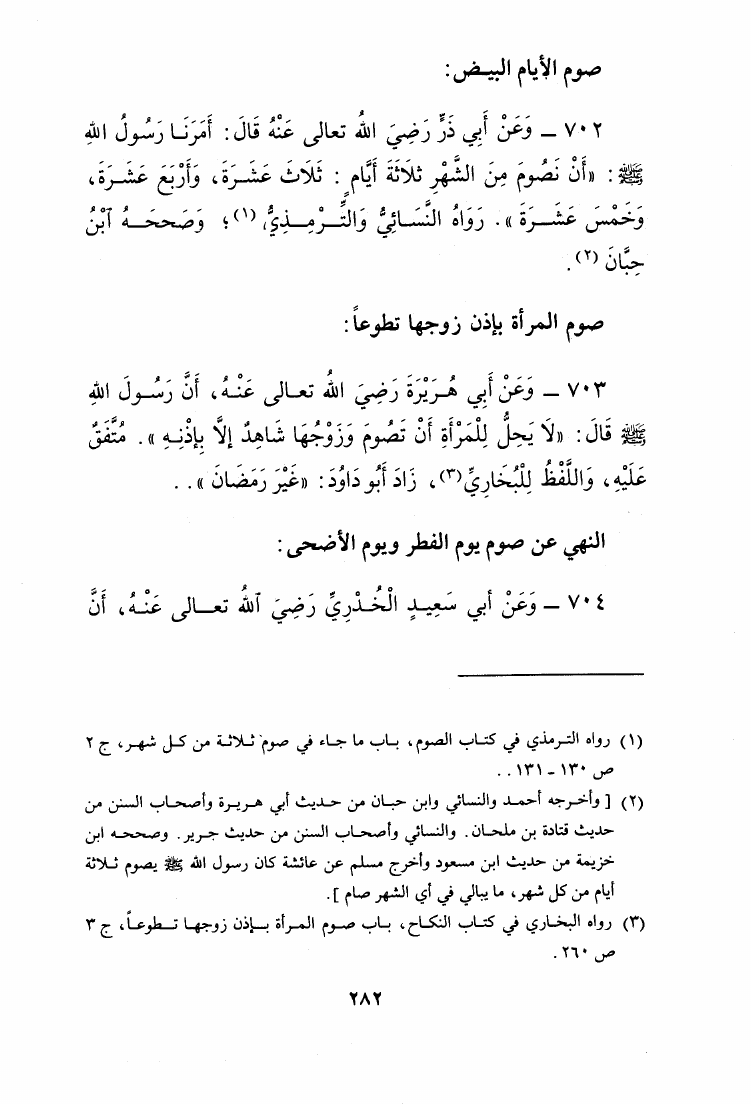 صوم الأيام البيـض:
٧٠٢ ــ وَعَنْ أَبِي ذَرٍّ رَضِيَ اللهُ تعالى عَنْهُ قَالَ: أَمَرَنَـا رَسُولُ اللهِ
ﷺ: «أَنْ نَصُومَ مِنَ الشَّهْرِ ثَلَاثَةَ أَيَّامٍ: ثَلَاثَ عَشْـرَةَ، وَأَرْبَعَ عَشْـرَةَ،
وَخَمْسَ عَشْـــرَةَ». رَوَاهُ النَّسَـائِيُّ وَالتِّــرْمِــذِيُّ(١)؛ وَصَححَــهُ ٱبْنُ
حِبَّانَ(٢).
صوم المرأة بإذن زوجها تطوعاً:
٧٠٣ ــ وَعَنْ أَبِي هُـرَيْرَةَ رَضِيَ اللهُ تعـالى عَنْـهُ، أَنَّ رَسُـولَ اللهِ
ﷺ قَالَ: «لَا يَحِلُّ لِلْمَرْأَةِ أَنْ تَصُومَ وَزَوْجُهَا شَاهِدٌ إلَّا بِإذْنِـهِ». مُتَّفَقٌ
عَلَيْهِ، وَاللَّفْظُ لِلْبُخَارِيِّ(٣)، زَادَ أَبُو دَاوُدَ: «غَيْرَ رَمَضَانَ». .
النهي عن صوم يوم الفطر ويوم الأضحى:
٧٠٤ ــ وَعَنْ أبي سَعِيـدٍ الْخُـدْرِيِّ رَضِيَ ٱللهُ تعـــالى عَنْـهُ، أَنَّ
(١) رواه التـرمذي في كتـاب الصوم، بـاب ما جـاء في صوم ثـلاثـة من كـل شهـر، ج ٢
ص ١٣٠ ـ ١٣١. .
(٢) [وأخـرجه أحمـد والنسائي وابن حبـان من حديث أبي هـريـرة وأصحـاب السنن من
حديث قتادة بن ملحـان. والنسائي وأصحـاب السنن من حديث جـرير. وصححـه ابن
خزيمة من حديث ابن مسعود وأخرج مسلم عن عائشة كان رسول الله ﷺ يصوم ثـلاثة
أيام من كل شهر، ما يبالي في أي الشهر صام].
(٣) رواه البخـاري في كتـاب النكـاح، بـاب صـوم المـرأة بـإذن زوجهـا تـطوعـاً، ج ٣
ص ٢٦٠.
٢٨٢